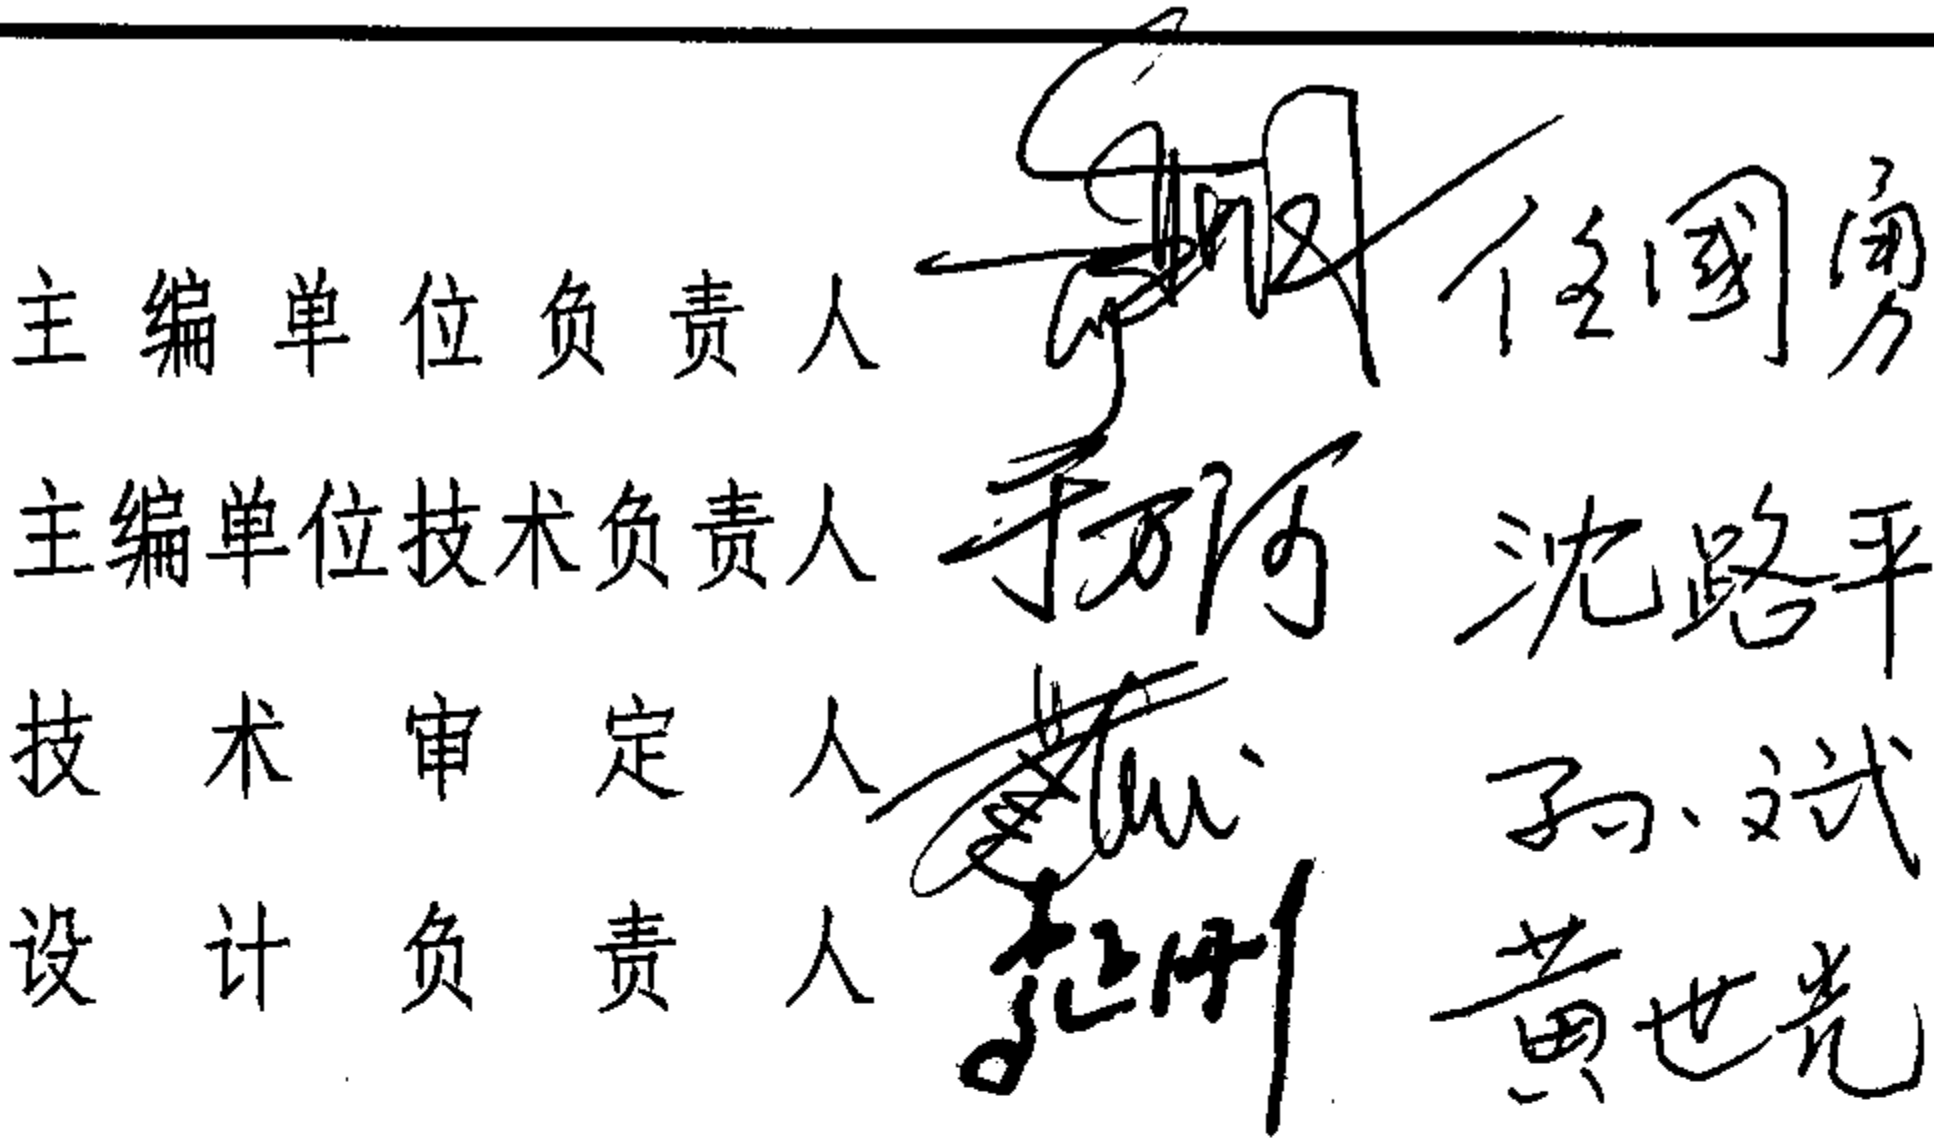 主编单位负责人 任國勇
主编单位技术负责人 沈路平
技术审定人 孙文斌
设计负责人 黄世光